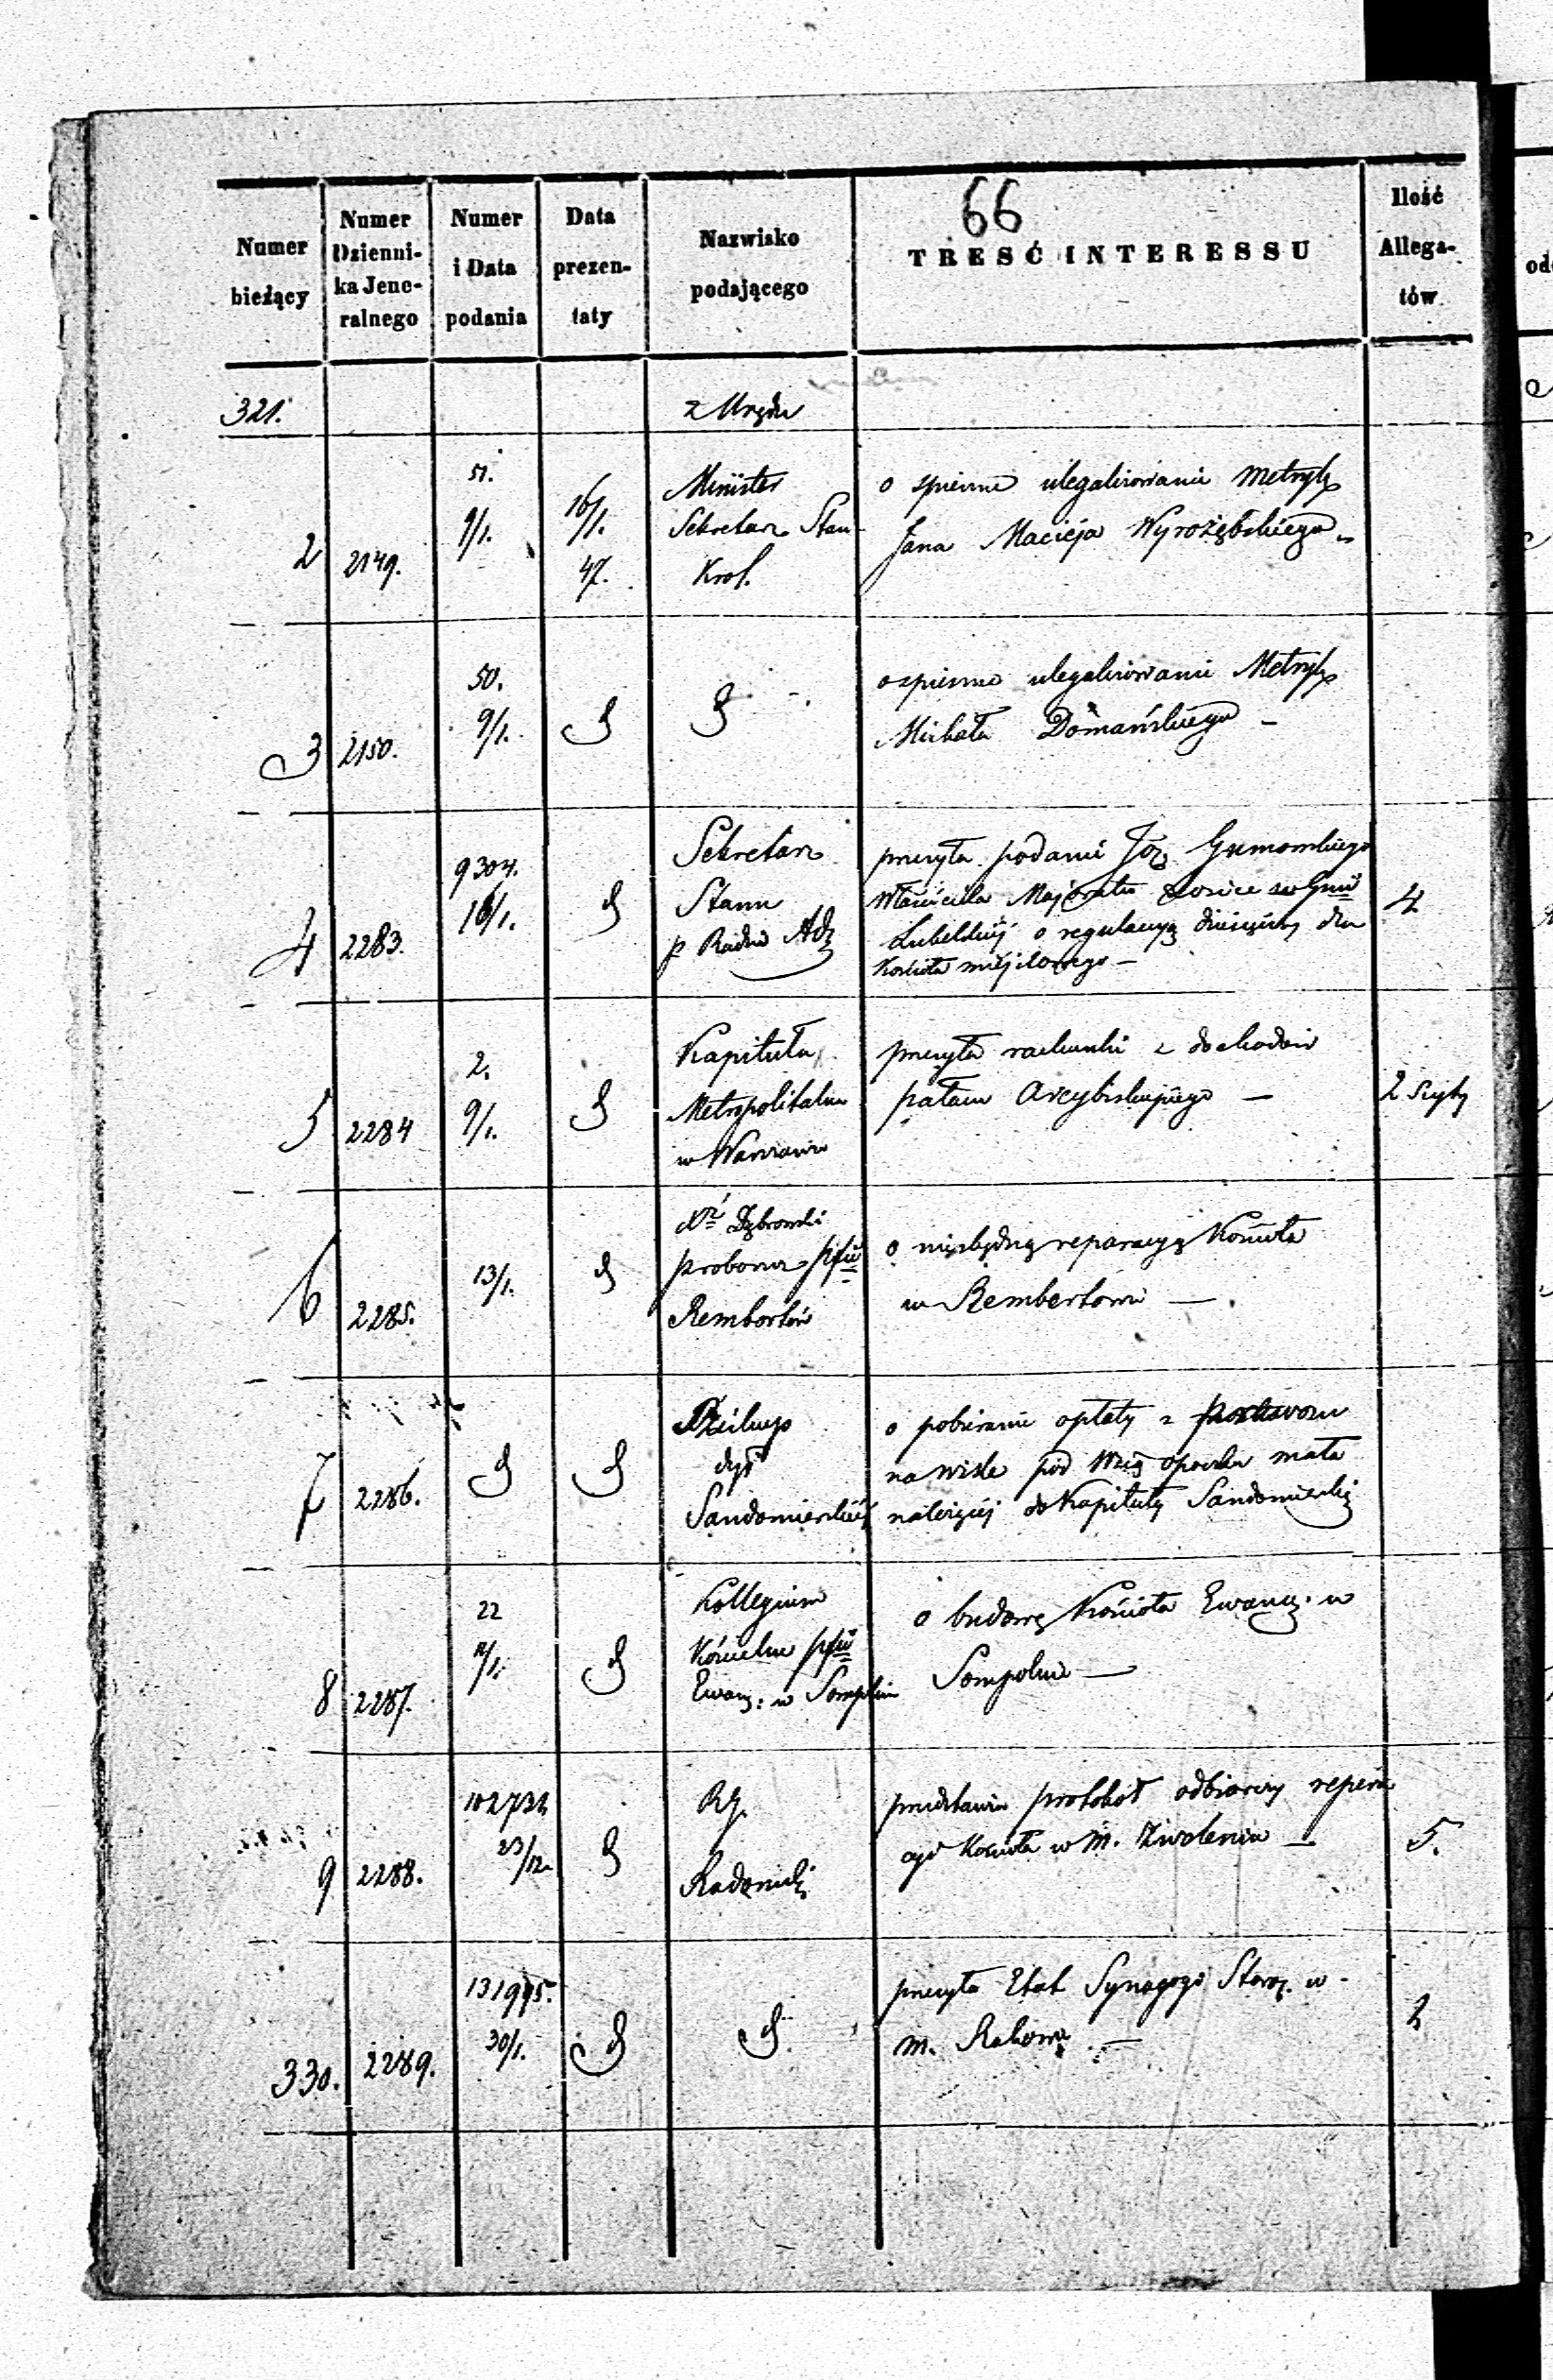 66
Numer bieżący
Numer Dzienni-ka Jene-ralnego
Numer i Data podania
Data prezen-taty
Nazwisko podającego
TREŚĆ INTERESSU
Ilość Allega-tów
321.
z Urzędu
2
2149.
51.
9/1.
16/1.
47.
Minister
Sekretarz Stan
Król.
o spieszne ulegalizowanie Metryk
Jana Macieja Wyrozębskiego
3
2150.
50.
9/1.
o spieszne ulegalizowanie Metryk
Michała Domańskiego –
4
2283.
9304.
16/1.
Sekretarz
Stanu
p Radzie Adz
przesyła podanie Józ
Właściciela Majoratu w Gnii
Lubelskiej o regulacyą dziesięciny dla
Kościoła miejscowego –
4
5
2284
2.
9/1.
Kapituła
Metropolitalna
w Warszawie
przesyła rachunki z dochodów
pałacu Arcybiskupiego –
2 Szyty
6
2285.
13/1.
Xdz Dąbrowski
proboszcz pfii
Rembertów
o niezbędną reparacyą Kościoła
w Rembertowie –
7
2286.
dyi
Sandomierskiej
o pobieranie opłaty z przewozu
na Wiśle pod Wsią opoczka mała
należącej do Kapituły Sandomierskiej
8
2287.
22
11/1.
Kollegium
Kościelne pfii
Ewang: w Sompolnie
o budowę Kościoła Ewang. w
Sompolnie –
9
2288.
102732
23/12
RG.
Radomski
przedstawia protokół odbiorczy repera
cyi Kościoła w M. Zwoleniu –
5.
330.
2289.
131995.
30/1.
przesyła Etat Synagogi Staroz. w
m. Rakowie –
2